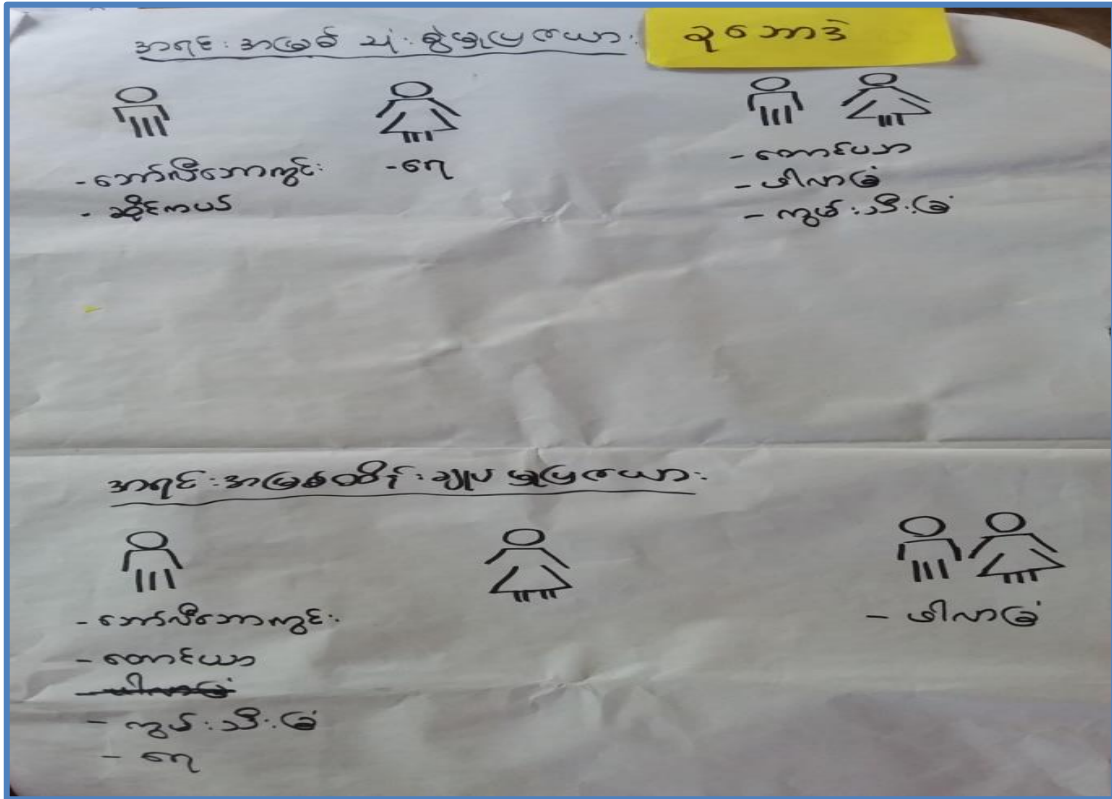 အရင်းအမြစ် သုံးစွဲမှုပြဇယား
ခုဘောဒဲ
- ဘော်လီဘောကွင်း
- ဆိုင်ကယ်
- ရေ
- တောင်ယာ
- ဖါလာခြံ
- ကွမ်းသီးခြံ
အရင်းအမြစ်ထိန်းချုပ်မှုပြဇယား
- ဘော်လီဘောကွင်း
- တောင်ယာ
- ဖါလာခြံ
- ကွမ်းသီးခြံ
- ရေ
- ဖါလာခြံ